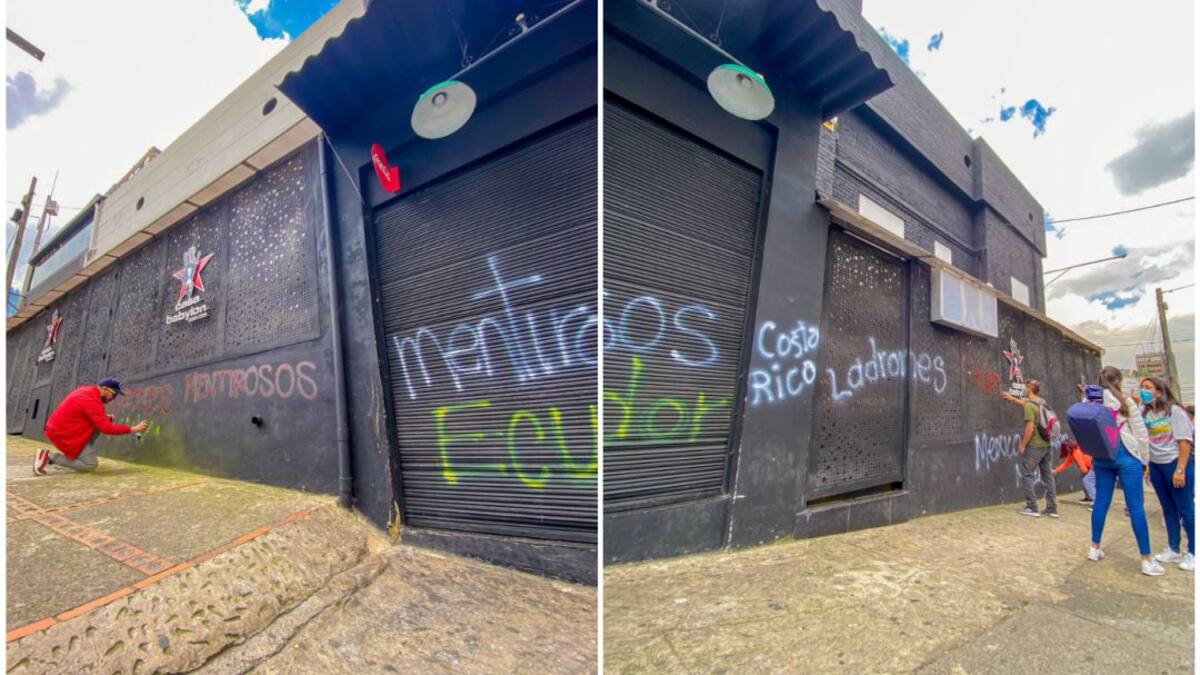 casa
babylon
MENTIROSOS
mentirosos
Ecuador
Costa
Rico
Ladrones
Mexico